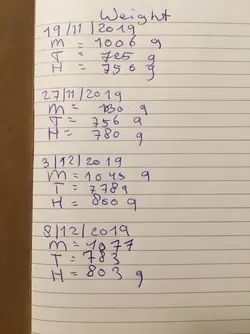 Weight
19/11/2019
M = 1006 g
T = 725 g
H = 750 g
27/11/2019
M = 1030 g
T = 756 g
H = 780 g
3/12/2019
M = 1045 g
T = 778g
H = 800 g
8/12/2019
M = 1077
T = 783
H = 803 g